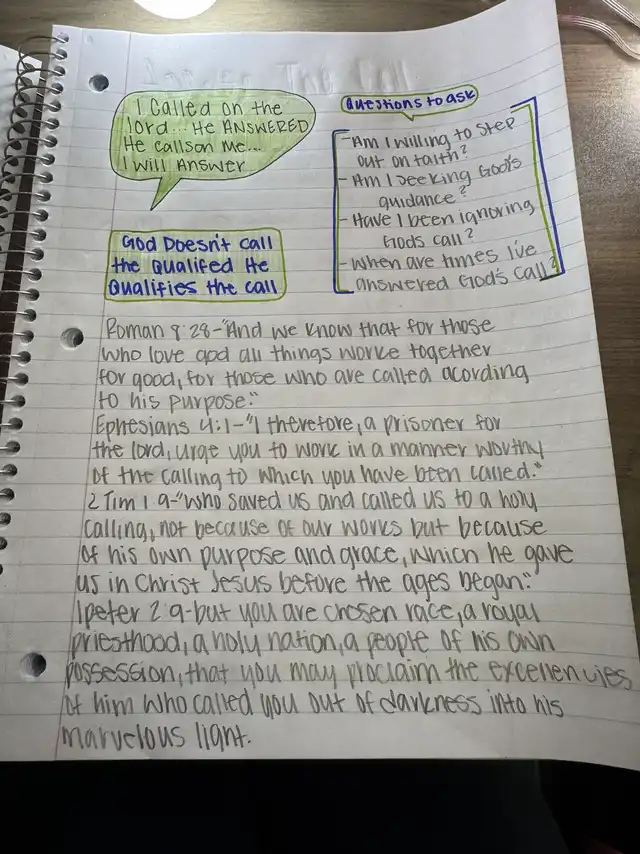 I called on the
lord... He ANSWERED
He callson Me...
I will Answer
Questions to ask
-Am I willing to step
out on faith?
-Am I seeking God's
guidance?
-Have I been ignoring
Gods call?
-When are times I've
answered God's call?
God Doesn't call
the Qualifed He
Qualifies the call
Roman 8:28-"And we know that for those
who love god all things worke together
for good, for those who are called acording
to his purpose."
Ephesians 4:1-"I therefore, a prisoner for
the lord, urge you to work in a manner worthy
of the calling to which you have been called."
2 Tim 1 9-"who saved us and called us to a holy
calling, not because of our works but because
of his own purpose and grace, which he gave
us in Christ Jesus before the ages began."
1peter 2:9-but you are chosen race, a royal
priesthood, a holy nation, a people of his own
possession, that you may proclaim the excellencies
of him who called you out of darkness into his
marvelous light.